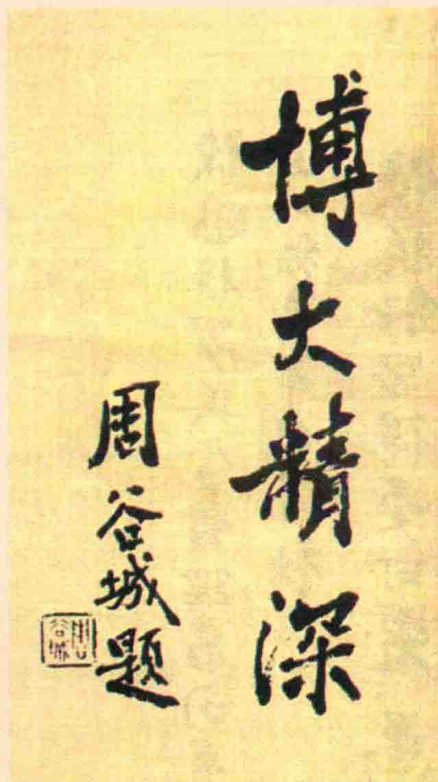 博大精深
周谷城题
周谷城